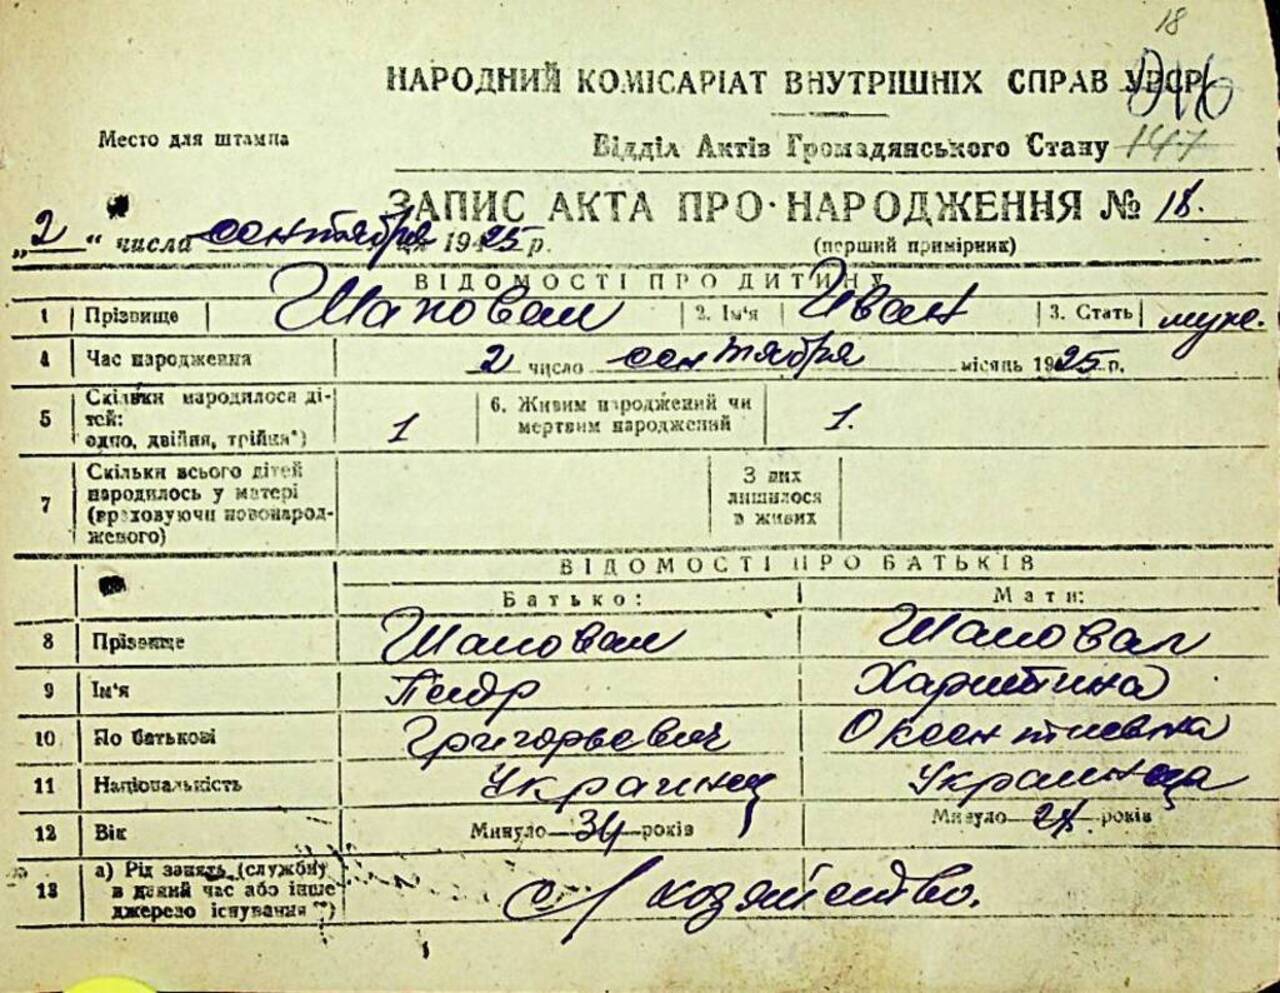 18
НАРОДНИЙ КОМІСАРІАТ ВНУТРІШНІХ СПРАВ УРСР
Место для штампа
Відділ Актів Громадянського Стану 147
ЗАПИС АКТА ПРО НАРОДЖЕННЯ № 18.
„2“ числа сентября 1925 р.
(перший примірник)
ВІДОМОСТІ ПРО ДИТИНУ
1 Прізвище Шаповал 2. Ім'я Иван 3. Стать муж.
4 Час народження 2 число сентября місяць 1925 р.
5 Скільки народилося ді-
тей:
одно, двійня, трійня*) 1
6. Живим народжений чи
мертвим народжений 1.
7 Скільки всього дітей
народилось у матері
(враховуючи новонарод-
женого)
З них
лишилося
в живих
ВІДОМОСТІ ПРО БАТЬКІВ
Батько: Мати:
8 Прізвище Шаповал Шаповал
9 Ім'я Педр Харитина
10 По батькові Григорьевич Оксентиевна
11 Національність Украинец Украинца
12 Вік Минуло 34 років Минуло 24 років
13 а) Рід занять (службу
в даний час або інше
джерело існування **) с/хозяйство.